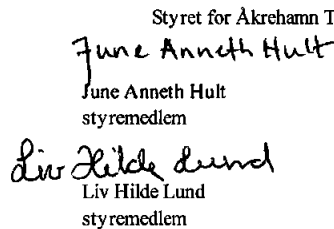 Styret for Åkrehamn T
June Anneth Hult
June Anneth Hult
styremedlem
Liv Hilde Lund
Liv Hilde Lund
styremedlem